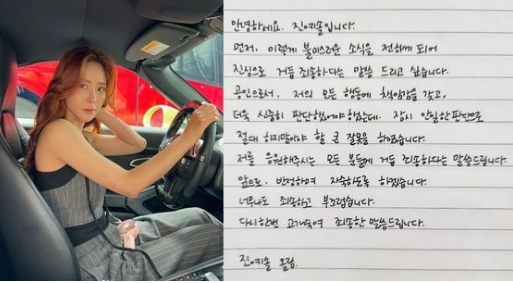 안녕하세요. 진예솔입니다.
먼저, 이렇게 불미스러운 소식을 전하게 되어
진심으로 거듭 죄송하다는 말씀 드리고 싶습니다.
공인으로서, 저의 모든 행동에 책임감을 갖고,
더욱 신중히 판단했어야 했는데. 잠시 안일한 판단으로
절대 하지말아야 할 큰 잘못을 하였습니다.
저를 응원해주시는 모든 분들에게 거듭 죄송하다는 말씀드립니다.
앞으로, 반성하며 자숙하도록 하겠습니다.
너무나도 죄송하고 부끄럽습니다.
다시한번 고개숙여 죄송한 말씀드립니다.
진예솔 올림.